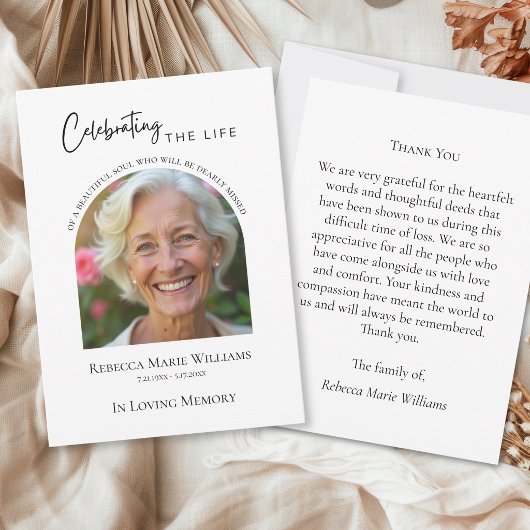 Celebrating
THE LIFE
OF A BEAUTIFUL SOUL WHO WILL BE DEARLY MISSED
REBECCA MARIE WILLIAMS
7.21.19XX - 5.17.20XX
IN LOVING MEMORY
THANK YOU
We are very grateful for the heartfelt
words and thoughtful deeds that
have been shown to us during this
difficult time of loss. We are so
appreciative for all the people who
have come alongside us with love
and comfort. Your kindness and
compassion have meant the world to
us and will always be remembered.
Thank you.
The family of,
Rebecca Marie Williams